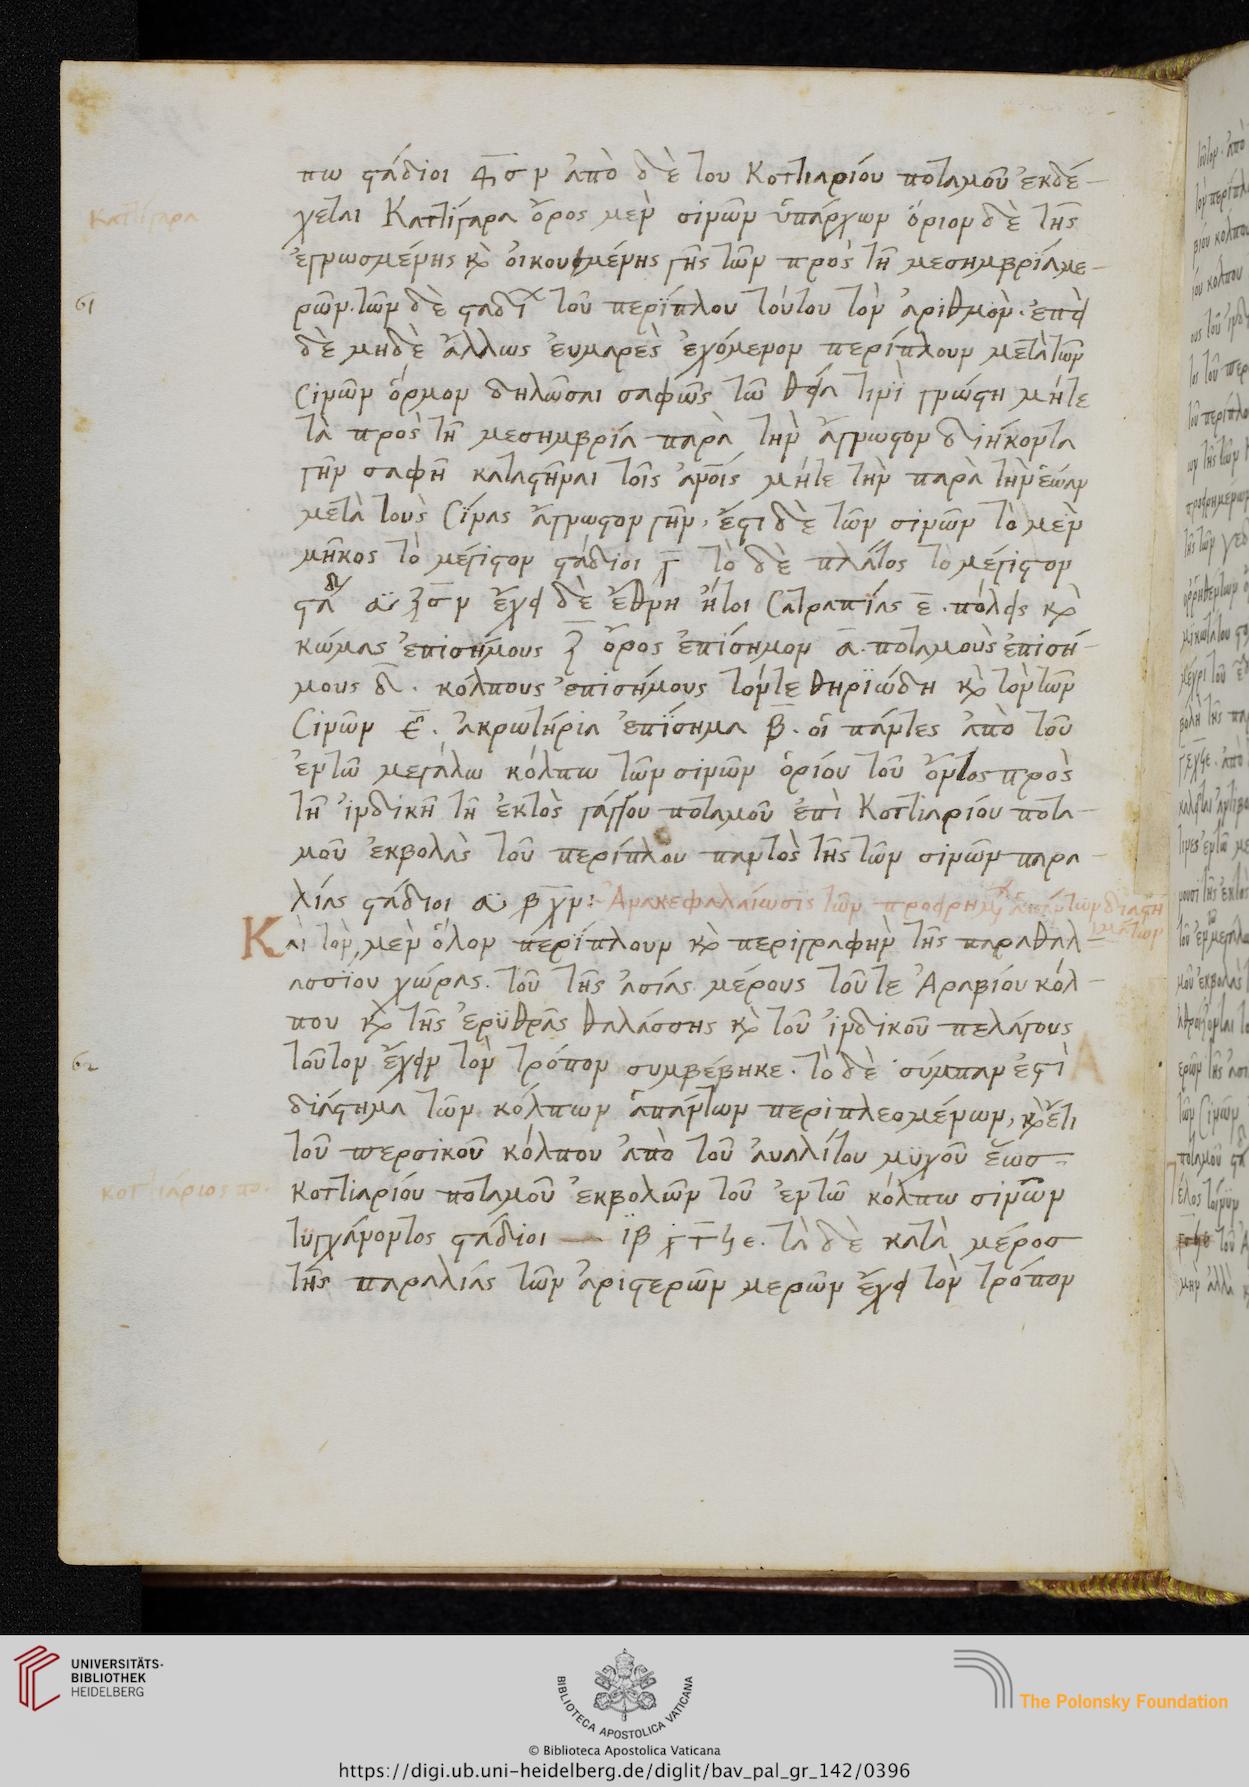 πω στάδιοι ͵δσν ἀπὸ δὲ τοῦ Κοττιαρίου ποταμοῦ ἐκδέ-
χεται Καττίγαρα ὅρμος μὲν σινῶν ὑπάρχων ὅριον δὲ τῆς
Καττίγαρα
ἐγνωσμένης καὶ οἰκουμένης γῆς τῶν πρὸς τῆ μεσημβρία με-
ρῶν. τῶν δὲ σταδί τοῦ περίπλου τούτου τὸν ἀριθμὸν. ἐπεὶ
61
δὲ μηδὲ ἄλλως εὐμαρὲς ἐχόμενον περίπλουν μετὰ τῶν
Σινῶν ὅρμον δηλῶσαι σαφῶς τῶ θεία τινὶ γνώστη μήτε
τὰ πρὸς τῆ μεσημβρία παρὰ τὴν ἄγνωστον διήκοντα
γῆν σαφῆ καταστῆναι τοῖς ἀνοις μήτε τὴν παρὰ τὴν ἑώαν
μετὰ τοὺς Σίνας ἄγνωστον γῆν. ἔστι δὲ τῶν σινῶν τὸ μὲν
μῆκος τὸ μέγιστον στάδιοι τὸ δὲ πλάτος τὸ μέγιστον
στα ἔχει δὲ ἔθνη ἤτοι Σατραπίας ε. πόλεις καὶ
κώμας ἐπισήμους ὅρος ἐπίσημον α. ποταμοὺς ἐπισή-
μους δ. κόλπους ἐπισήμους τόντε θηριώδη καὶ τὸν τῶν
Σινῶν. ἀκρωτήρια ἐπίσημα β. οἱ πάντες ἀπὸ τοῦ
ἐν τῶ μεγάλω κόλπω τῶν σινῶν ὁρίου τοῦ ὄντος πρὸς
τῆ ἰνδικῆ τῆ ἐκτὸς γάγγου ποταμοῦ ἐπὶ Κοττιαρίου ποτα-
μοῦ ἐκβολὰς τοῦ περίπλου παντὸς τῆς τῶν σινῶν παρα-
λίας στάδιοι α βχν: Ἀνακεφαλαίωσις τῶν προειρημ ἁπάντων διαστη
μάτων
Καὶ τὸν μὲν ὅλον περίπλουν καὶ περιγραφὴν τῆς παραθαλ-
ασσίου χώρας. τοῦ τῆς ἀσίας μέρους τοῦ τε Ἀραβίου κόλ-
που καὶ τῆς ἐρυθρᾶς θαλάσσης καὶ τοῦ ἰνδικοῦ πελάγους
τοῦτον ἔχειν τὸν τρόπον συμβέβηκε. τὸ δὲ σύμπαν ἐστὶ
62
διάστημα τῶν κόλπων ἁπάντων περιπλεομένων, καὶ ἔτι
τοῦ περσικοῦ κόλπου ἀπὸ τοῦ ἀυαλίτου μυχοῦ ἕωσ
κοττιαρίου ποταμοῦ ἐκβολῶν τοῦ ἐν τῶ κόλπω σινῶν
κοττιάριος πο.
τυγχάνοντος στάδιοι — ϊβ ͵γτϟε. τὰ δὲ κατὰ μέροσ
τῆς παραλίας τῶν ἀριστερῶν μερῶν ἔχει τὸν τρόπον
UNIVERSITÄTS-
BIBLIOTHEK
HEIDELBERG
BIBLIOTECA APOSTOLICA VATICANA
The Polonsky Foundation
© Biblioteca Apostolica Vaticana
https://digi.ub.uni-heidelberg.de/diglit/bav_pal_gr_142/0396